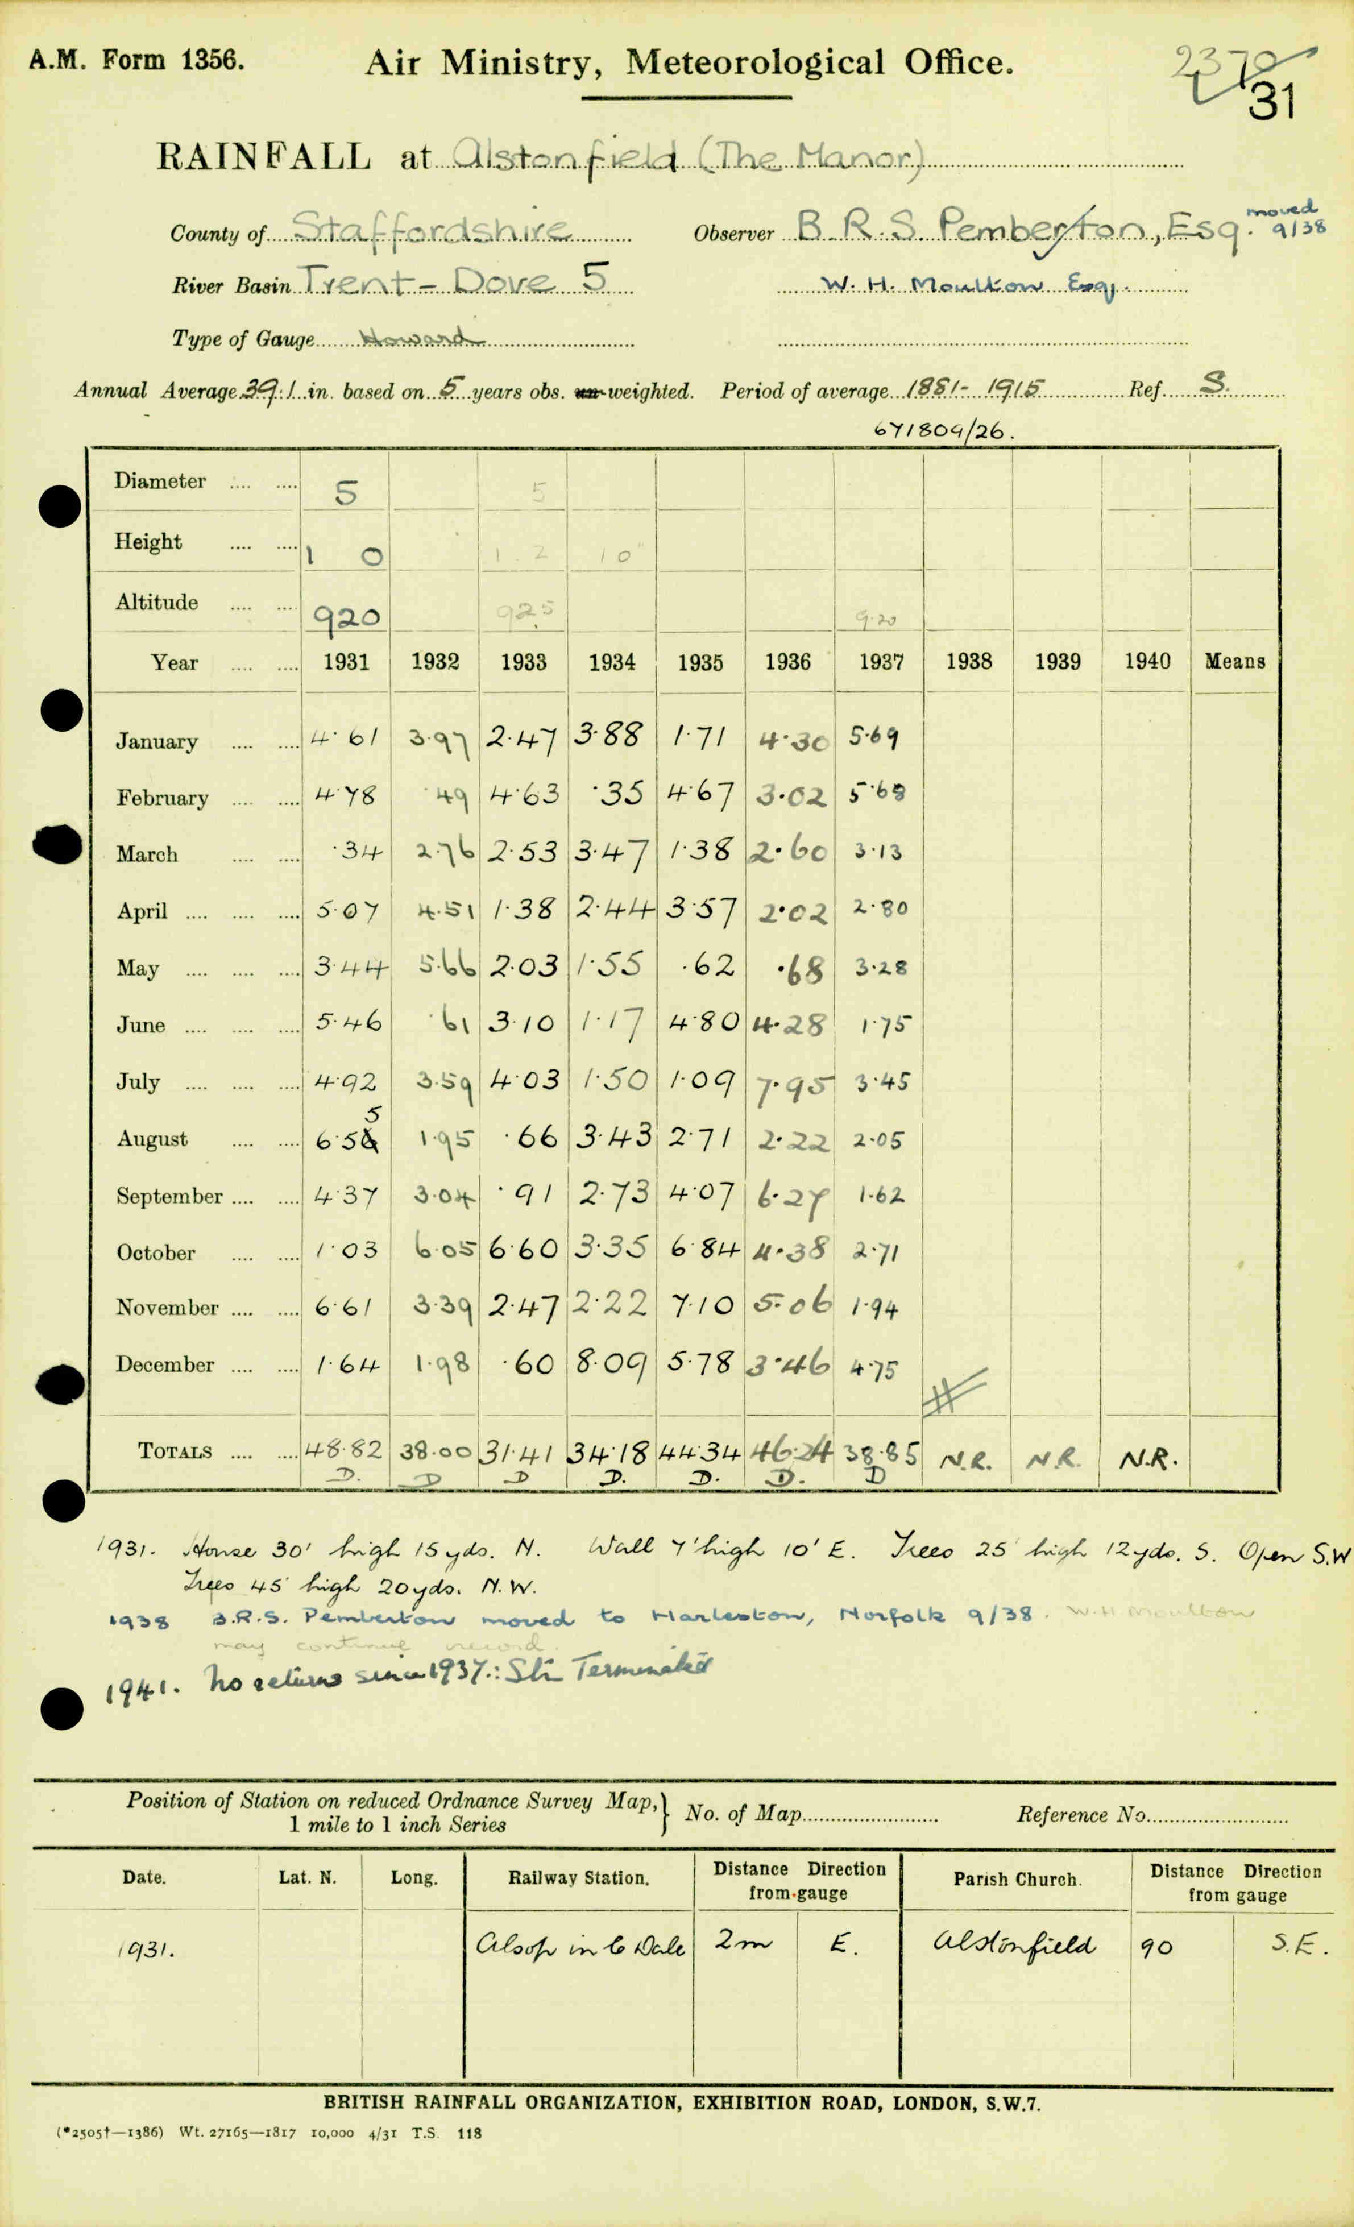 A.M. Form 1356.
Air Ministry, Meteorological Office.
2370
31
RAINFALL at Alstonfield (The Manor)
County of Staffordshire Observer B. R. S. Pemberton, Esq. moved 9/38
River Basin Trent - Dove 5 W. H. Moulton Esq.
Type of Gauge Howard
Annual Average 39.1 in. based on 5 years obs. un-weighted. Period of average 1881- 1915 Ref. S.
671809/26.
Diameter .... .... 5 5
Height .... .... 1 0 1 . 2 10"
Altitude .... .... 920 925 920
Year .... .... 1931 1932 1933 1934 1935 1936 1937 1938 1939 1940 Means
January .... .... 4.61 3.97 2.47 3.88 1.71 4.30 5.69
February .... .... 4.78 .49 4.63 .35 4.67 3.02 5.68
March .... .... .34 2.76 2.53 3.47 1.38 2.60 3.13
April .... .... .... 5.07 4.51 1.38 2.44 3.57 2.02 2.80
May .... .... .... 3.44 5.66 2.03 1.55 .62 .68 3.28
June .... .... .... 5.46 .61 3.10 1.17 4.80 4.28 1.75
July .... .... .... 4.92 3.59 4.03 1.50 1.09 7.95 3.45
5
August .... .... 6.56 1.95 .66 3.43 2.71 2.22 2.05
September .... .... 4.37 3.04 .91 2.73 4.07 6.27 1.62
October .... .... 1.03 6.05 6.60 3.35 6.84 4.38 2.71
November .... .... 6.61 3.39 2.47 2.22 7.10 5.06 1.94
December .... .... 1.64 1.98 .60 8.09 5.78 3.46 4.75
TOTALS .... .... 48.82 38.00 31.41 34.18 44.34 46.24 38.85 N.R. N.R. N.R.
D. D D D. D. D. D
1931. House 30' high 15 yds. N. Wall 7' high 10' E. Trees 25' high 12 yds. S. Open S.W
Trees 45' high 20 yds. N.W.
1938 B.R.S. Pemberton moved to Harleston, Norfolk 9/38. W.H Moulton
may continue record.
1941. No returns since 1937.: Stn Terminated
Position of Station on reduced Ordnance Survey Map,} No. of Map Reference No.
1 mile to 1 inch Series
Date. Lat. N. Long. Railway Station. Distance Direction from gauge Parish Church. Distance Direction from gauge
1931. Alsop in le Dale 2m E. Alstonfield 90 S.E.
BRITISH RAINFALL ORGANIZATION, EXHIBITION ROAD, LONDON, S.W.7.
(*2505†—1386) Wt. 27165—1817 10,000 4/31 T.S. 118